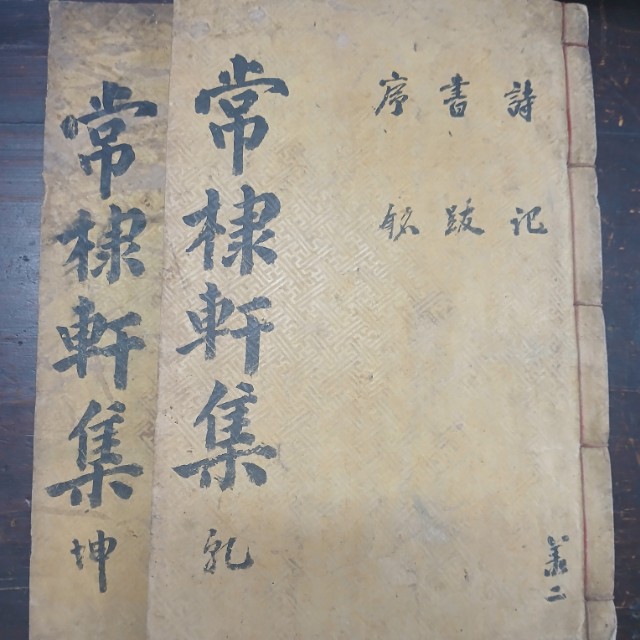 詩 记
書 跋
序 銘
二
常棣軒集 乹
常棣軒集 坤